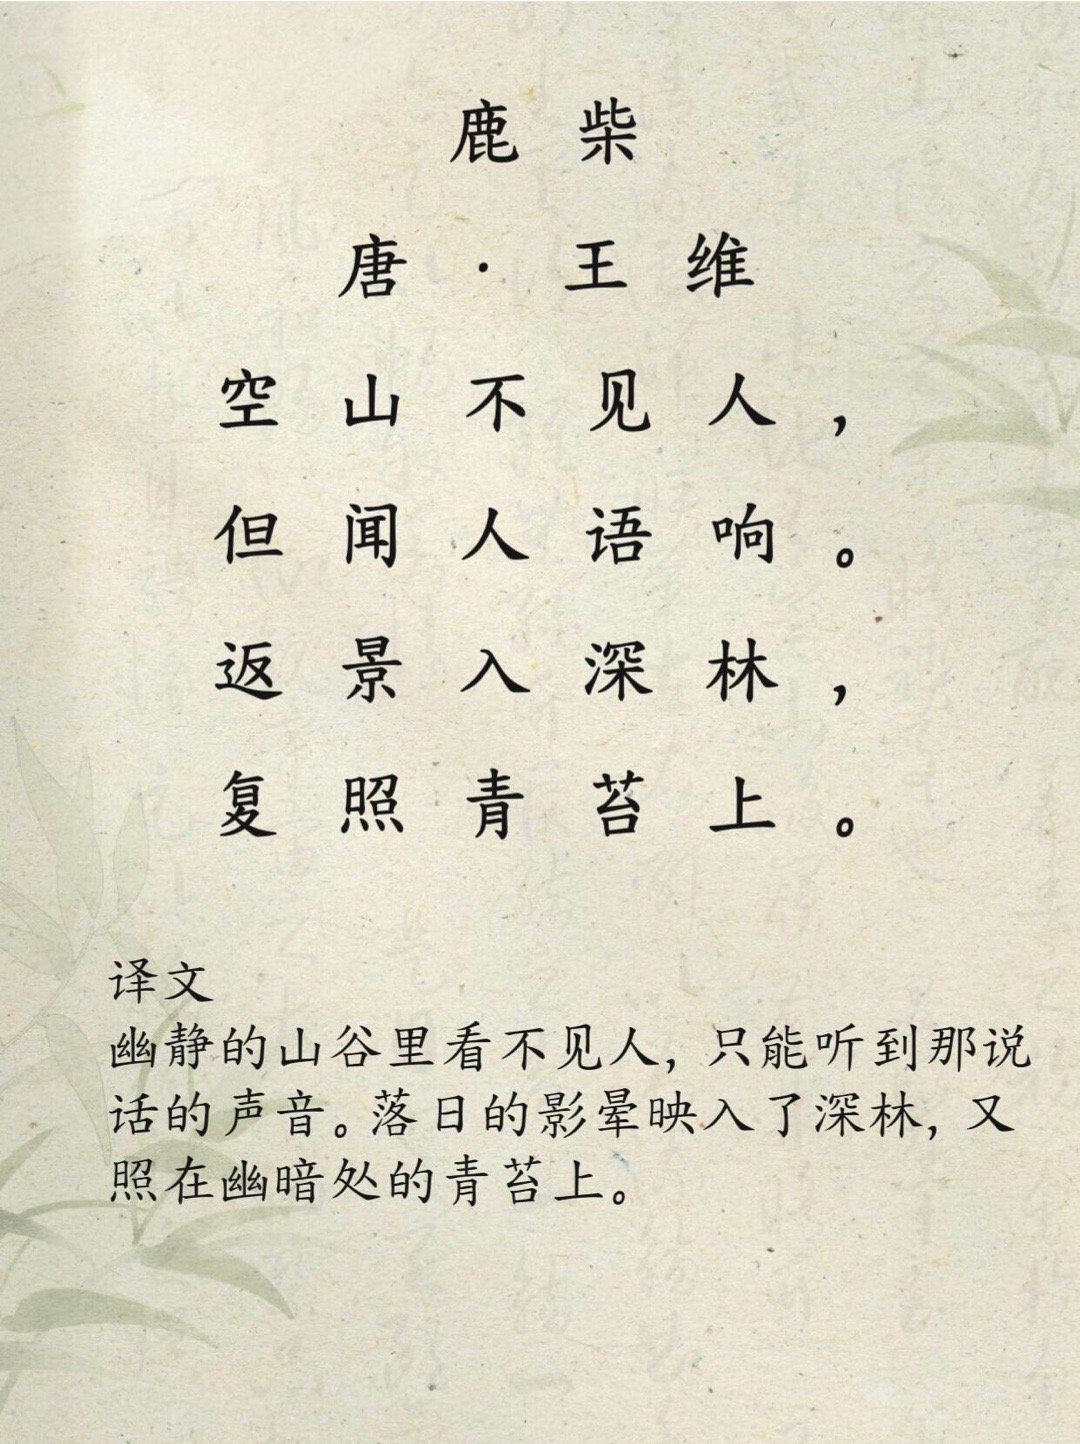 鹿柴
唐·王维
空山不见人，
但闻人语响。
返景入深林，
复照青苔上。
译文
幽静的山谷里看不见人，只能听到那说
话的声音。落日的影晕映入了深林，又
照在幽暗处的青苔上。